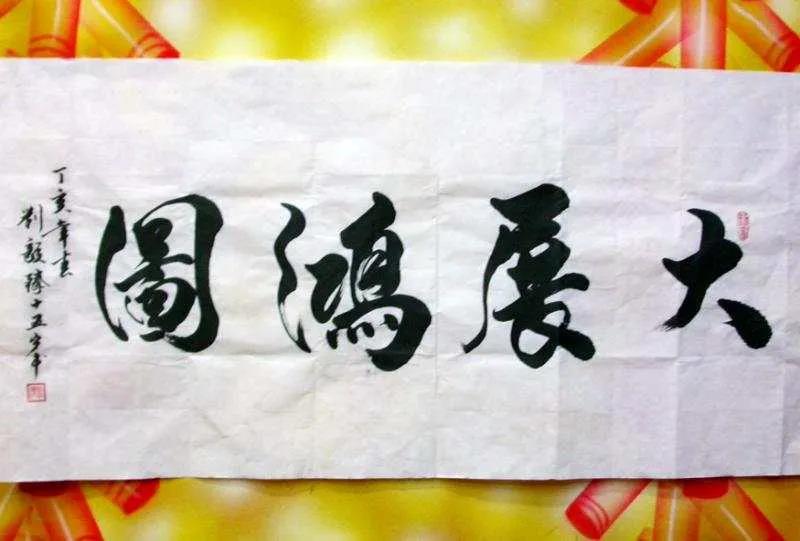 大展鴻圖
丁亥年書
劉毅臻十五歲書